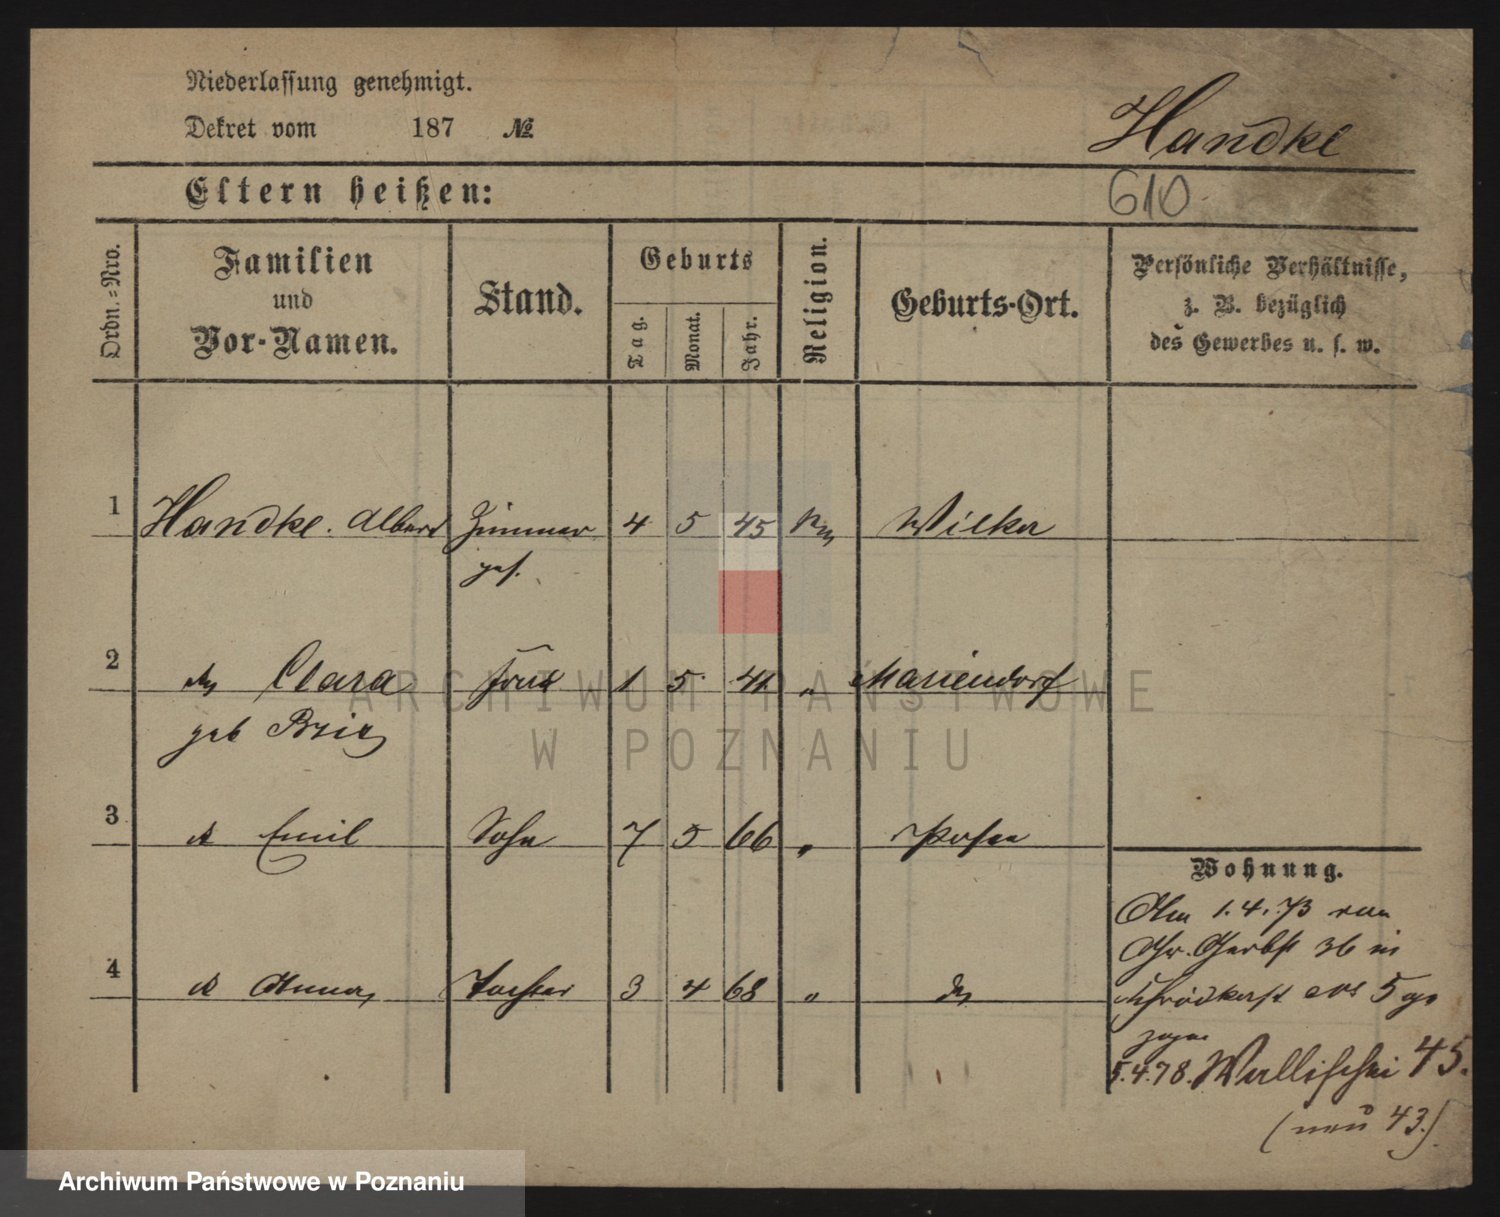 Niederlassung genehmigt.
Dekret vom 187 №
Handke
Eltern heißen:
610
Ordn.=Nro.
Familien
und
Vor-Namen.
Stand.
Geburts
Tag.
Monat.
Jahr.
Religion.
Geburts-Ort.
Persönliche Verhältnisse,
z. B. bezüglich
des Gewerbes u. s. w.
1 Handke. Albert Zimmer 4 5 45 Wilka
ges.
2 Clara Frau 1 5 41 „ Mariendorf
geb
3 Emil Sohn 7 5 66 „ Posen
4 Anna Tochter 3 4 68 „
Wohnung.
Am 1.4.73 von
Gr. Gerbst 36 in
5 ge
zogen
5.4.78. Wallischei 45.
(neu 43.)
ARCHIWUM PAŃSTWOWE
W POZNANIU
Archiwum Państwowe w Poznaniu